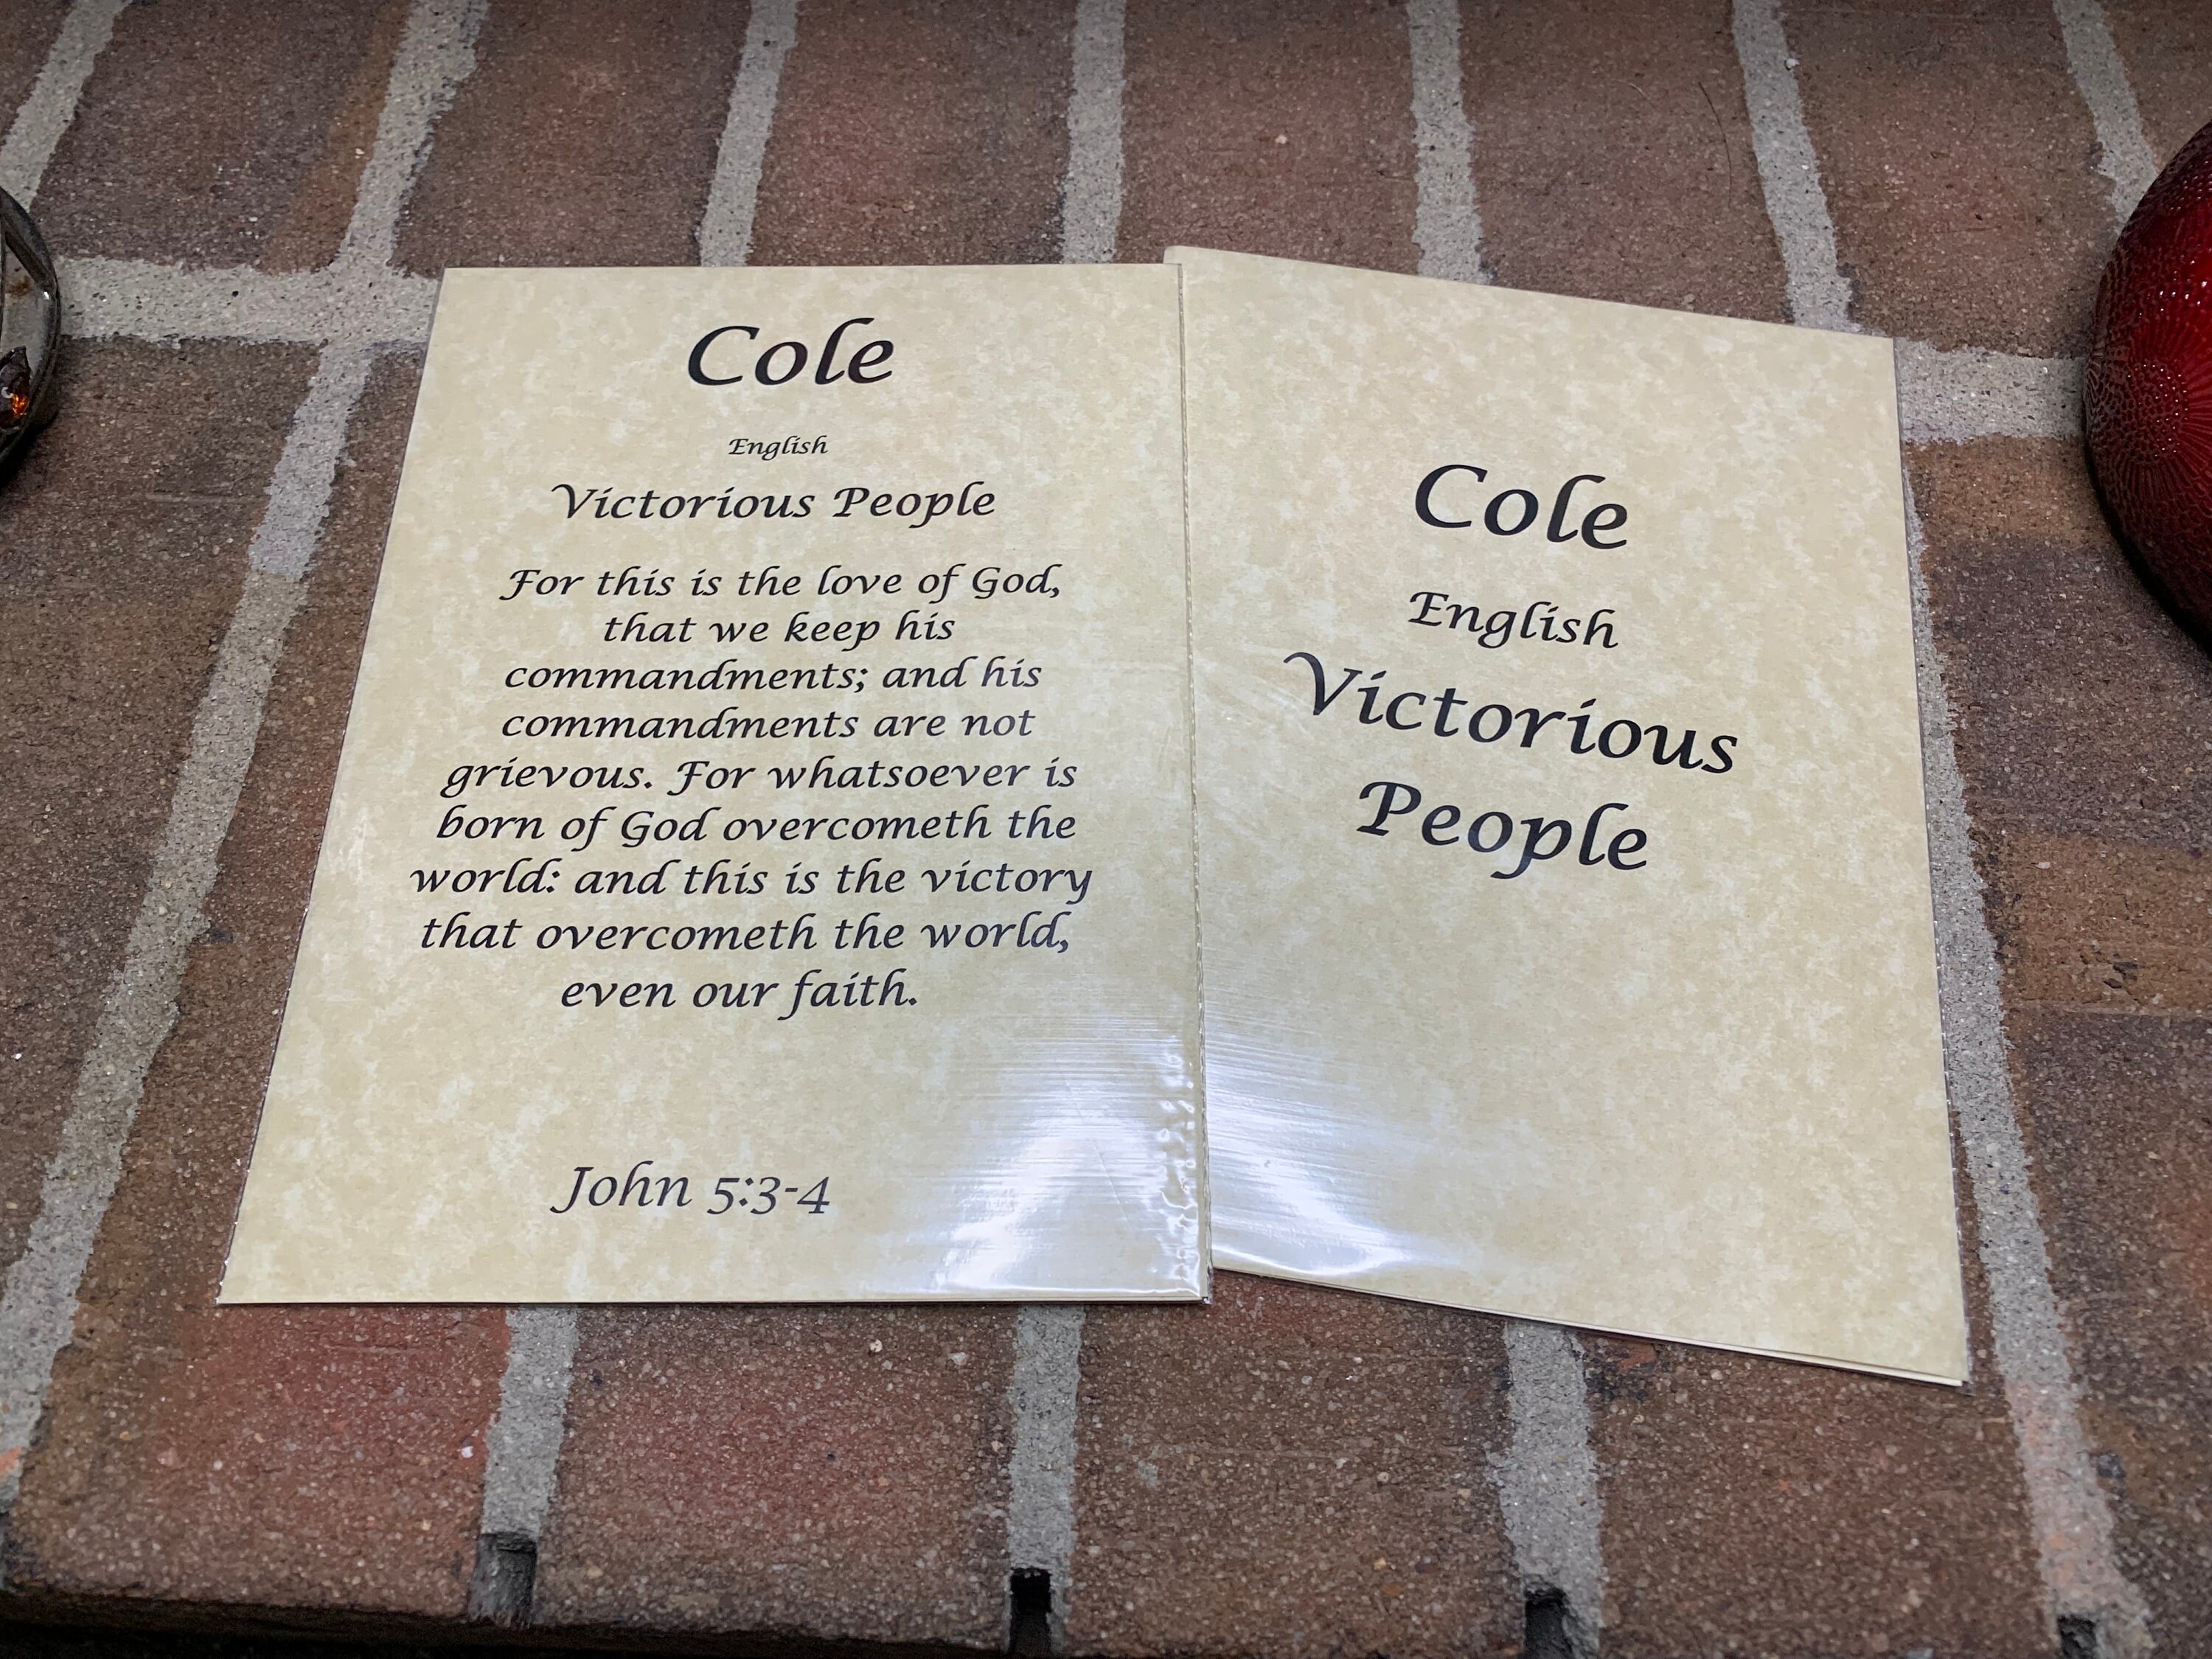 Cole
English
Victorious People
For this is the love of God,
that we keep his
commandments; and his
commandments are not
grievous. For whatsoever is
born of God overcometh the
world: and this is the victory
that overcometh the world,
even our faith.
John 5:3-4
Cole
English
Victorious
People